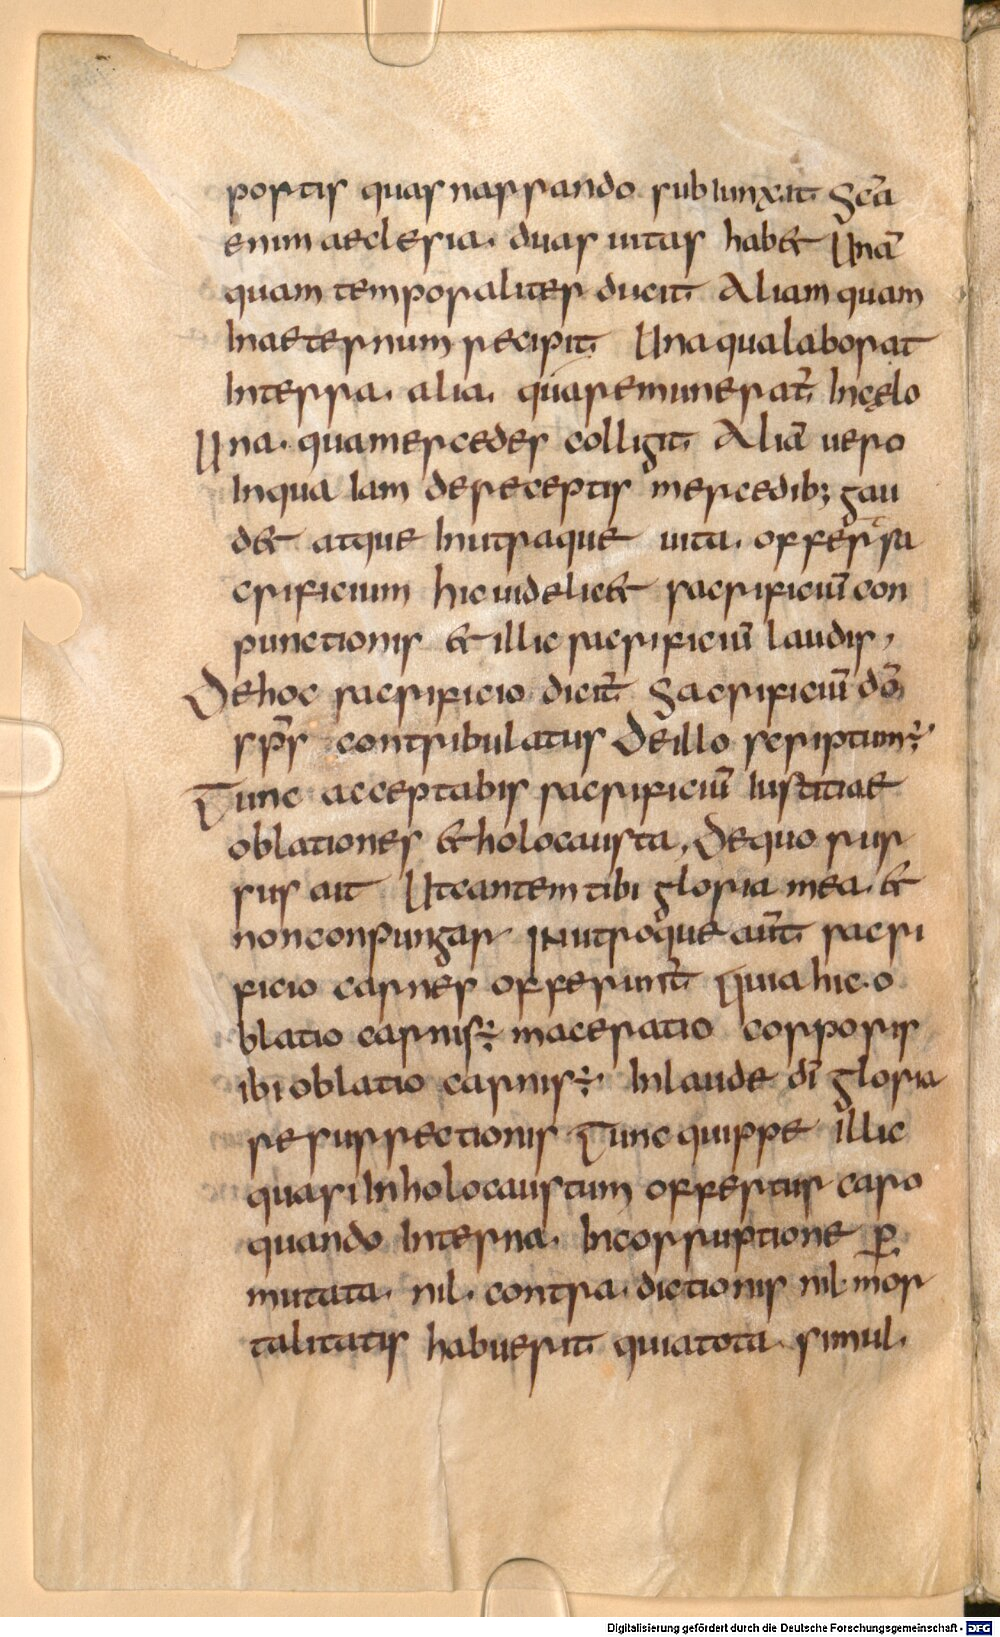 postis quas narrando subiunxit Sc̄a
enim aeclesia. duas uitas hab& Unā
quam temporaliter ducit Aliam quam
Inaeternum recipit Una qua laborat
Interra. alia. qua remunerat̄ In cęlo
Una. qua mercedes colligit Aliā uero
Inqua Iam de receptis mercedib; gau
d& atque Inutraque uita. offert sa
crificium hic uidelic& sacrificiū con
punctionis & illic sacrificiū laudis,
De hoc sacrificio dicit̄ Sacrificiū dō
sp̄s contribulatus De illo scriptum÷
Tunc acceptabis sacrificiū Iustitiae
oblationes & holocausta, De quo rur
sus ait Ut cantem tibi gloria mea. &
non conpungar INutroque aūt sacri
ficio carnes offerunt̄ Quia hic. o
blatio carnis÷ maceratio corporis
ibi oblatio carnis÷ Inlaude dī gloria
resurrectionis Tunc quippe illic
quasi Inholocaustum offertur caro
quando Interna. Incorruptione p̲
mutata. nil. contra.dictionis nil mor
talitatis habuerit quia tota. simul.
Digitalisierung gefördert durch die Deutsche Forschungsgemeinschaft - DFG